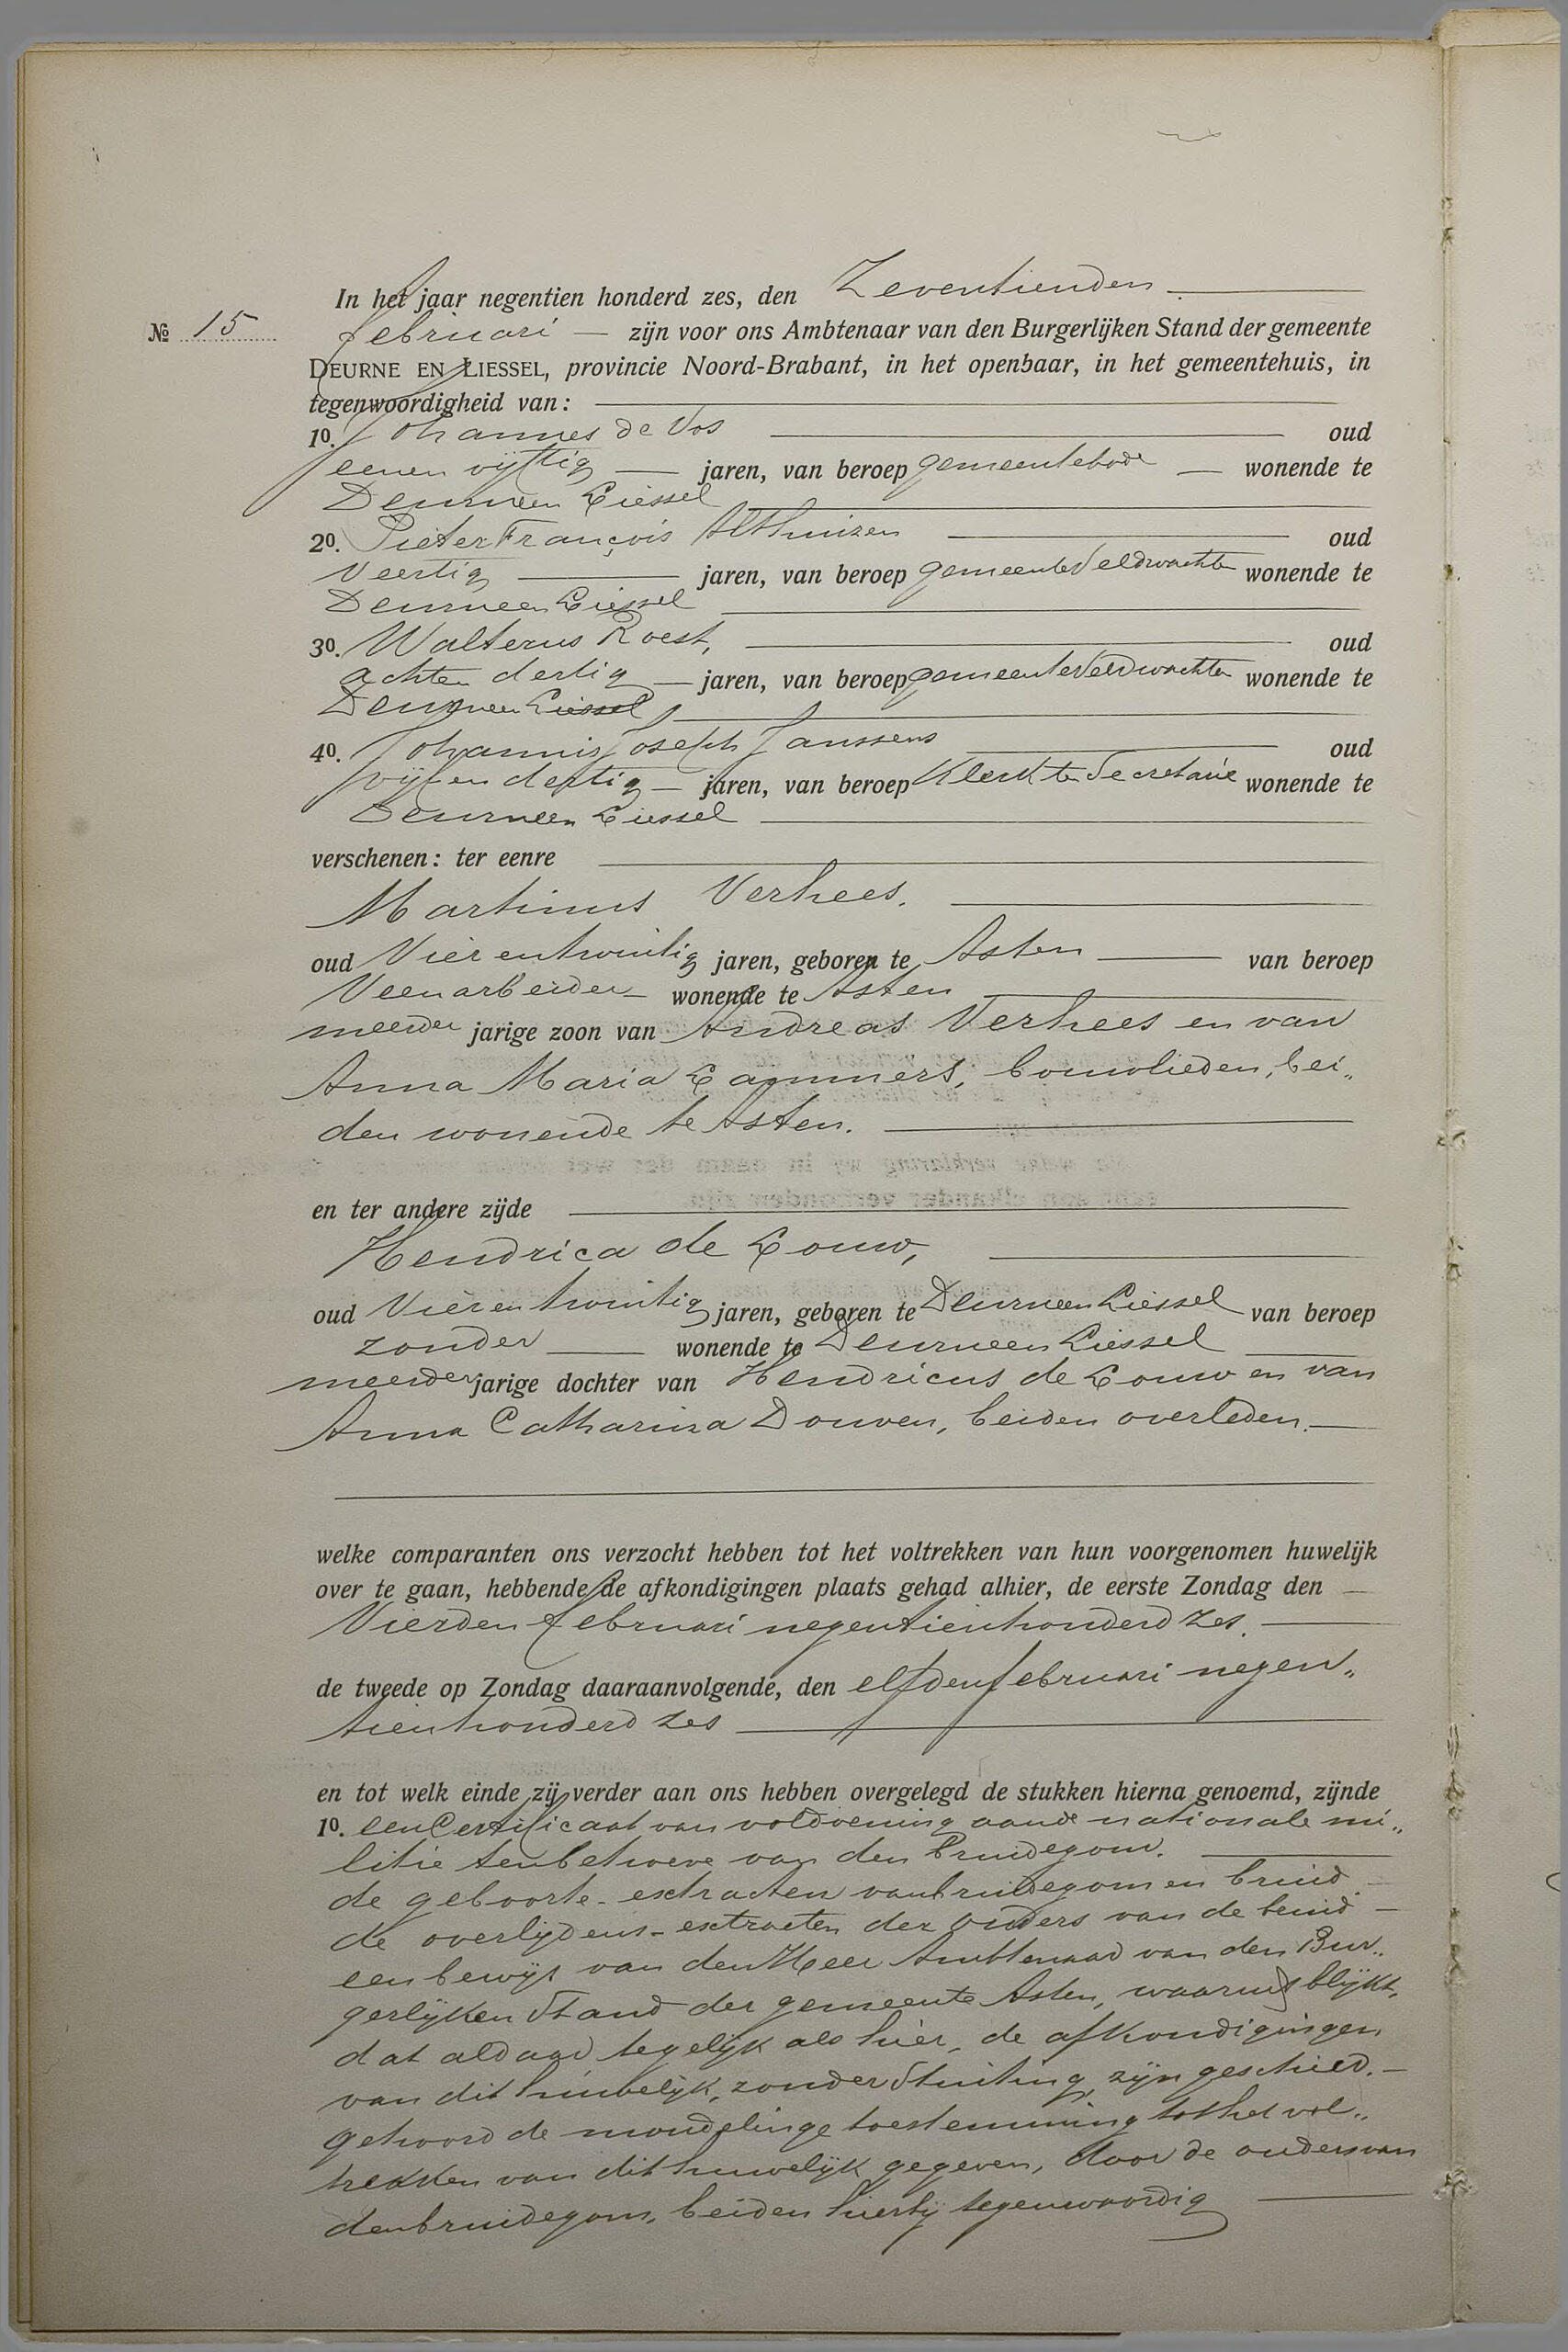 In het jaar negentien honderd zes, den Zeventienden
№ 15 februari — zijn voor ons Ambtenaar van den Burgerlijken Stand der gemeente
DEURNE EN LIESSEL, provincie Noord-Brabant, in het openbaar, in het gemeentehuis, in
tegenwoordigheid van:
1º. Johannes de Vos oud
eenen vijftig — jaren, van beroep gemeentebode — wonende te
Deurne en Liessel
2º. Pieter François Althuizen oud
Veertig jaren, van beroep gemeenteveldwachter wonende te
Deurne en Liessel
3º. Walterus Roest, oud
achten dertig — jaren, van beroep gemeenteveldwachter wonende te
Deurne en Liessel
4º. Johannis Joseph Janssens oud
vijfen dertig — jaren, van beroep Klerk ter Secretarie wonende te
Deurne en Liessel
verschenen: ter eenre
Martinus Verhees.
oud Vier entwintig jaren, geboren te Asten van beroep
Veenarbeider — wonende te Asten
meerder jarige zoon van Andreas Verhees en van
Anna Maria Lammers, bouwlieden, bei„
den wonende te Asten.
en ter andere zijde
Hendrica de Louw,
oud Vier en twintig jaren, geboren te Deurne en Liessel van beroep
zonder wonende te Deurne en Liessel
meerder jarige dochter van Hendricus de Louw en van
Anna Catharina Douven, beiden overleden.
welke comparanten ons verzocht hebben tot het voltrekken van hun voorgenomen huwelijk
over te gaan, hebbende de afkondigingen plaats gehad alhier, de eerste Zondag den —
Vierden februari negentienhonderd zes.
de tweede op Zondag daaraanvolgende, den elfden februari negen„
tienhonderd zes
en tot welk einde zij verder aan ons hebben overgelegd de stukken hierna genoemd, zijnde
1º. een Certificaat van voldoening aan de nationale mi„
litie ten behoeve van den bruidegom.
de geboorte-extracten van bruidegom en bruid —
de overlijdens-extracten der ouders van de bruid —
een bewijs van den Heer Ambtenaar van den Bur„
gerlijken Stand der gemeente Asten, waaruit blijkt,
dat aldaar tegelijk als hier, de afkondigingen
van dit huwelijk, zonder stuiting, zijn geschied. —
gehoord de mondelinge toestemming tot het vol„
trekken van dit huwelijk gegeven, door de ouders van
den bruidegom, beiden hierbij tegenwoordig